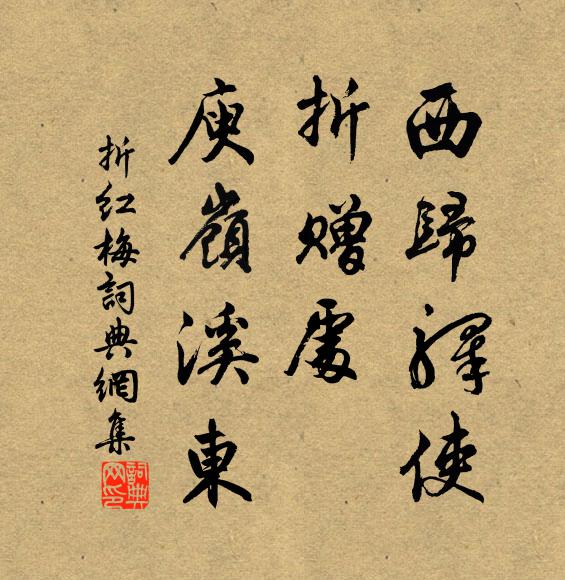 西歸驛使
折贈處
庾嶺溪東
折红梅詞典網集
詞典网印